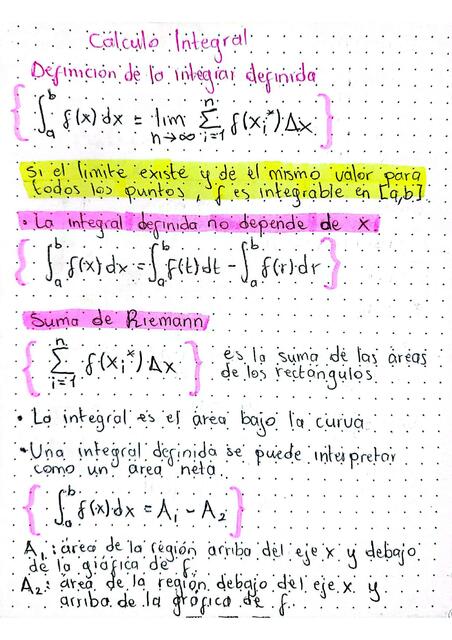 Cálculo Integral
Definición de la integral definida
∫_a^b f(x) dx = lim_{n→∞} Σ_{i=1}^n f(x_i^*) Δx
Si el límite existe y dé el mismo valor para
todos los puntos, f es integrable en [a,b]
• La integral definida no depende de x
∫_a^b f(x) dx = ∫_a^b f(t) dt - ∫_a^b f(r) dr
Suma de Riemann
Σ_{i=1}^n f(x_i^*) Δx
es la suma de las áreas
de los rectángulos.
• La integral es el área bajo la curva
• Una integral definida se puede interpretar
como un área neta.
∫_a^b f(x) dx = A_1 - A_2
A_1: área de la región arriba del eje x y debajo
de la gráfica de f.
A_2: área de la región debajo del eje x y
arriba de la gráfica de f.